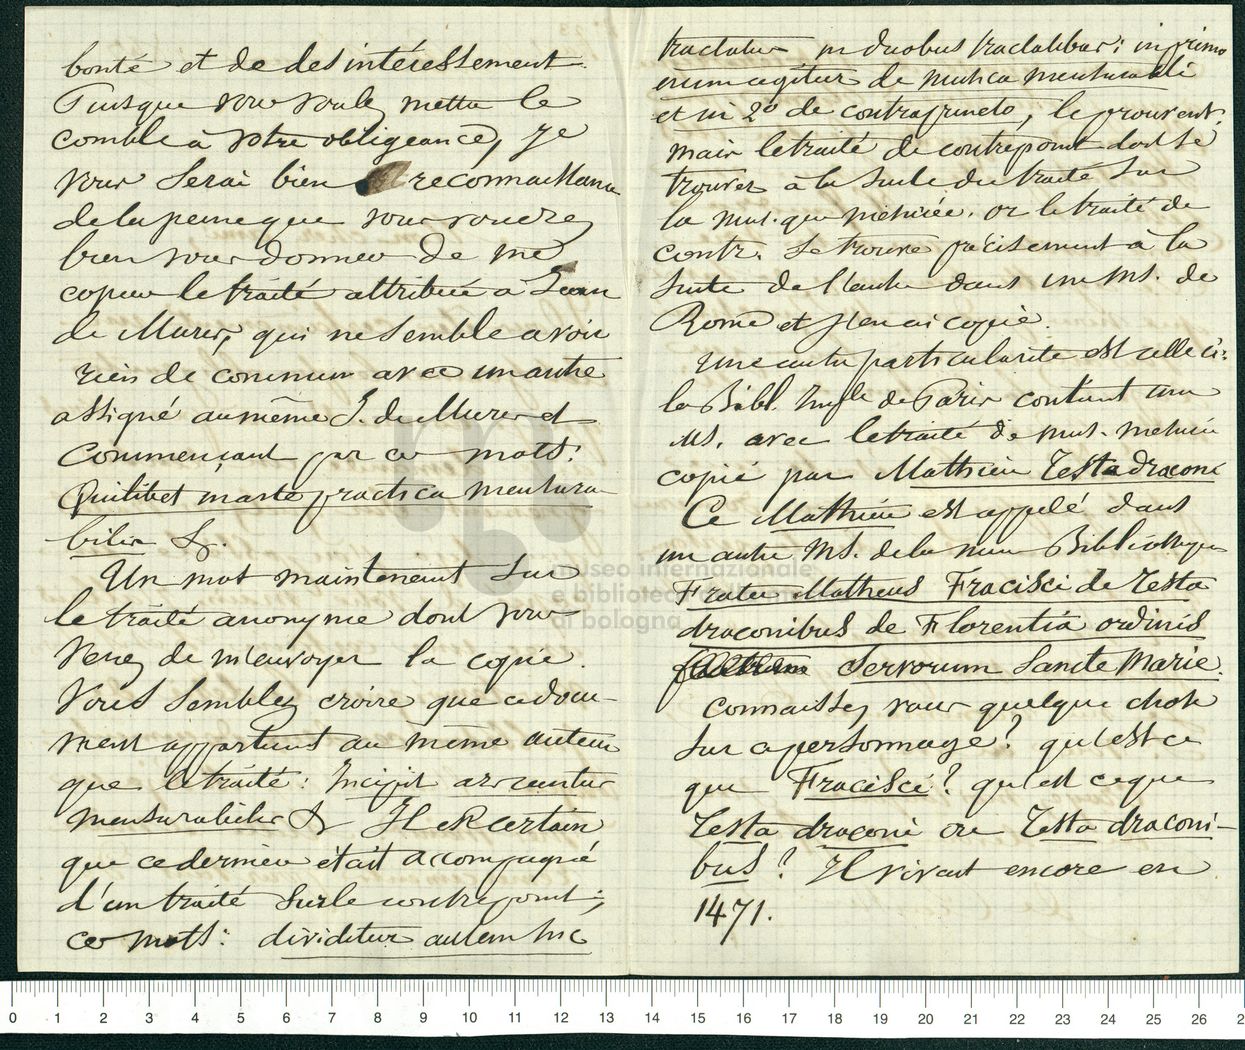 bonté et de desintéressement.
Puisque vous voulez mettre le
comble à votre obligeance, je
vous serai bien reconnaissant
de la peine que vous voudrez
bien vous donner de me
copier le traité attribué à Jean
de Muris, qui ne semble avoir
rien de commun avec un autre
assigné au même J. de Muris et
commençant par ces mots:
Quilibet in arte practica mensura-
bilis &.
Un mot maintenant sur
le traité anonyme dont vous
venez de m'envoyer la copie.
Vous semblez croire que ce docu-
ment appartient au même auteur
que le traité: Incipit ars cantus
mensurabilis & Il est certain
que ce dernier était accompagné
d'un traité sur le contrepoint;
ces mots: dividitur autem hic
tractatus in duobus tractatibus: in primo
enim agitur de musica mensurabili
et in 2º de contrapuncto, le prouvent.
mais le traité de contrepoint doit se
trouver à la suite du traité sur
la musique mesurée. or le traité de
contr. se trouve précisement à la
suite de l'autre dans un MS. de
Rome et j'en ai copie.
Une autre particularité est celle ci:
la Bibl. de Paris contient un
MS. avec le traité de mus. mesurée
copié par Mathieu Testadraconi
Ce Mathieu est appelé dans
un autre MS. de la même Bibliothèque
Frater Matheus Fracisci de Testa
draconibus de Florentia ordinis
Servorum Sancte Marie.
Connaissez vous quelque chose
sur ce personnage? qu'est ce
que Fracisci? qu'est ce que
Testa draconi ou Testa draconi-
bus? Il vivait encore en
1471.
museo internazionale
e biblioteca della musica
di bologna
0 1 2 3 4 5 6 7 8 9 10 11 12 13 14 15 16 17 18 19 20 21 22 23 24 25 26